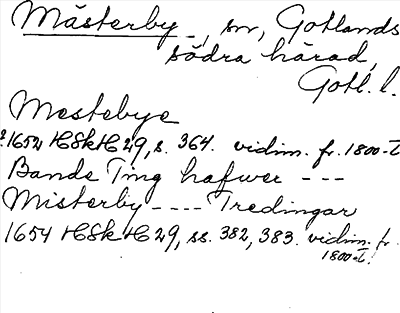 Mästerby, sn, Gotlands
södra härad,
Gotl. l.
Mestebye
1652 HSkH 29, s. 364. vidim. fr. 1800-t
Bande Ting hafwer ---
Misterby ---- Tredingar
1654 HSkH 29, ss. 382, 383. vidim. fr.
1800-t.